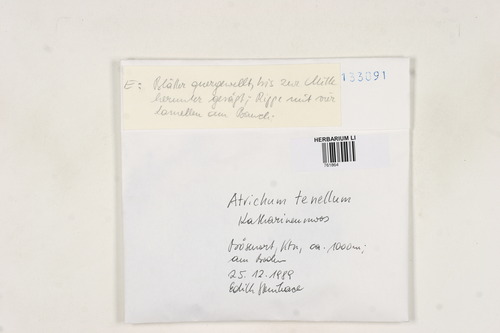 E: Blätter quergewellt, bis zur Mitte
herunter gesägt; Rippe mit vier
Lamellen am Bauch.
133091
HERBARIUM LI
761864
Atrichum tenellum
Katharinenmoos
Ktn, ca. 1000m;
am Boden
25.12.1989
Edith